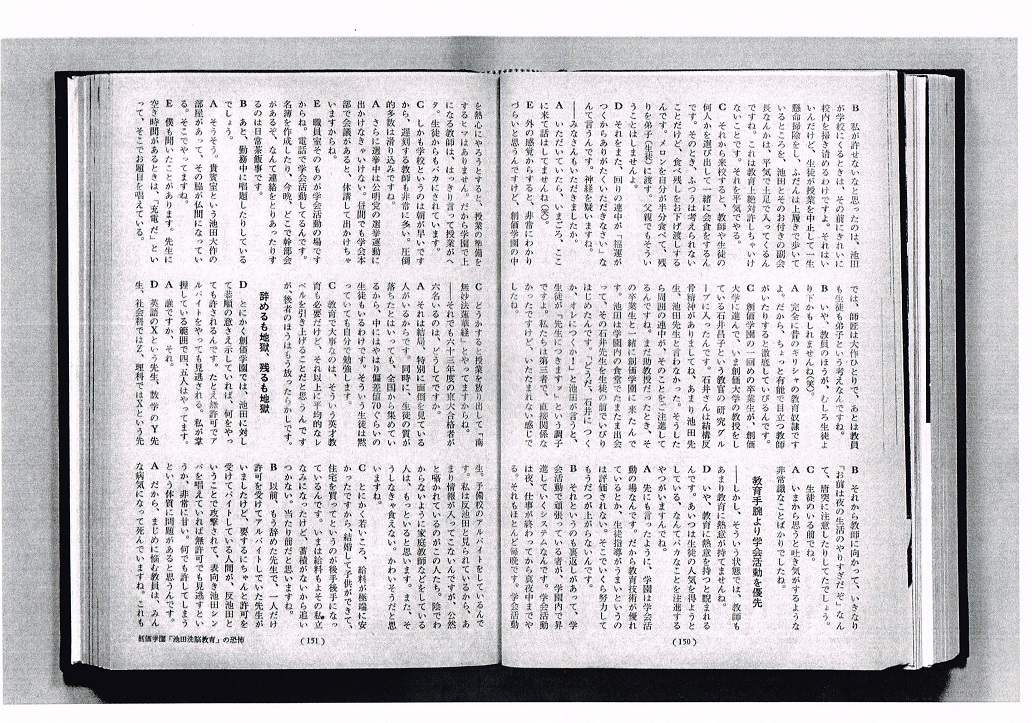 B 私が許せないなと思ったのは、池田
が学校にくるときは、その前にきれいに
校内を掃き清めるわけですよ。それはい
いんだけど、生徒が授業を中止して一生
懸命掃除をし、ふだんは上履きで歩いて
いるところを、池田とそのお付きの副会
長なんかは、平気で土足で入ってくるん
ですね。これは教育上絶対許しちゃいけ
ないことです。それを平気でやる。
C それから来校すると、教師や生徒の
何人かを選び出して一緒に会食をするん
です。そのとき、ふつうは考えられない
ことだけど、食べ残しをお下げ渡しする
んです。メロンを自分が半分食べて、残
りを弟子(生徒)に渡す。父親でもそうい
うことはしませんよ。
D それをまた、回りの連中が、"福運が
つくからありがたくいただきなさい"な
んて言うから、神経を疑いますね。
――みなさんもいただきましたか。
A いただいていたら、いまごろ、ここ
に来て話はしてませんね(笑)。
E 外の感覚からすると、非常にわかり
づらいと思うんですけど、創価学園の中
では、師匠は大作ひとりで、あとは教員
も生徒も弟子という考えなんですね。
B いや、教員のほうが、むしろ生徒よ
り下かもしれませんね(笑)。
A 完全に昔のギリシャの教育奴隷です
よ。だから、ちょっと有能で目立つ教師
がいたりすると徹底していびるんです。
C 創価学園の一回めの卒業生が、創価
大学に進んで、いま創価大学の教授をし
ている石井昌子という教官の研究グル
ープに入ったんです。石井さんは結構反
骨精神がありましてね、あまり池田先
生、池田先生と言わなかった。そうした
ら周囲の連中が、そのことをご注進して
るんですね。まだ助教授だったとき、そ
の卒業生と一緒に創価学園に来たんで
す。池田は学園内の食堂でたまたま出会
って、その石井先生を生徒の前でいびり
はじめたんです。「どうだ、石井につく
か、オレにつくか!」と池田が言うと、
生徒が「先生につきます」という調子
ですよ。私たちは第三者で、直接関係な
かったですけど、いたたまれない感じで
したね。
B それから教師に向かって、いきなり
「お前は夜の生活のやりすぎだぞ」なん
て、唐突に注意したりしてたでしょう。
C 生徒のいる前でね。
A いまから思うと吐き気がするような
非常識なことばかりでしたね。
教育手腕より学会活動を優先
――しかし、そういう状態では、教師も
あまり教育に熱意が持てませんね。
D いや、教育に熱意を持つと睨まれる
んです。あいつは生徒の人気を得ようと
している、なんてバカなことを注進する
やつがいますんでね。
A 先にも言ったように、学園は学会活
動の場なんです。だから教育技術が優れ
ているとか、生徒指導がうまいというの
は評価されない。そこでいくら努力して
もうだつが上がらないんです。
B それというのも裏返しがあって、学
会活動で頑張っている者が、学園内で昇
進していくシステムなんです。学会活動
は夜、仕事が終わってから真夜中まです
る。それもほとんど毎晩です。学会活動
(150)
を熱心にやろうとすると、授業の準備を
するヒマはありません。だから学園で上
になる教師は、はっきり言って授業がへ
タ。生徒からもバカにされています。
C しかも学校というのは朝が早いです
から、遅刻する教師も非常に多い。圧倒
的多数は滑り込みですね。
A さらに選挙中は公明党の選挙運動に
出かけなきゃいけない。昼間でも学会本
部で会議があると、休講して出かけちゃ
いますからね。
E 職員室そのものが学会活動の場です
からね。電話で学会活動してるんです。
名簿を作成したり、今晩、どこで幹部会
があるぞ、なんて連絡をとりあったりす
るのは日常茶飯事です。
B あと、勤務中に唱題したりしている
でしょう。
A そうそう。貴賓室という池田大作の
部屋があって、その脇が仏間になってい
る。そこでやってますね。
E 僕も聞いたことがあります。先生に
空き時間があるときは、「充電だ」とい
って、そこでお題目を唱えている。
C どうかすると授業を放り出して「南
無妙法蓮華経」とやってますからね。
――それでも六十三年度の東大合格者が
六名いるのは、どうしてですか。
A それは結局、特別に面倒を見ている
人がいるからです。同時に、生徒の質が
落ちたとはいっても、全国から集めてい
るから、中にはやはり偏差値70ぐらいの
生徒もいるわけです。そういう生徒は黙
っていても自分で勉強します。
C 教育で大事なのは、そういう英才教
育も必要だけど、それ以上に平均的なレ
ベルを引き上げることだと思うんです
が、後者のほうはもう放ったらかしです。
辞めるも地獄、残るも地獄
D とにかく創価学園では、池田に対し
て恭順の意さえ示していれば、何をやっ
ても許されるんです。たとえ無許可でア
ルバイトをやっても見逃される。私が掌
握している範囲で四、五人はやってます。
A 誰ですか、それ。
D 英語のXという先生、数学のY先
生、社会科ではZ、理科ではXという先
生。予備校のアルバイトをしているんで
す。私は反池田と見られているから、あ
まり情報が入ってこないんですが、公然
と囁かれているのがこの人たち。陰でわ
からないように家庭教師などをしている
人は、もっといると思います。また、そ
うしなきゃ食えない。かわいそうだと思
いますね。
C とにかく若いころ、給料が極端に安
かったですから、結婚して子供ができて、
住宅を買ってというのが後手後手になっ
ているんです。いまは給料もよその私立
なみになったけど、蓄積がないから追い
つかない。当たり前だと思いますね。
B 以前、もう辞めた先生で、一人だけ
許可を受けてアルバイトしていた先生が
いましたけど、要するにちゃんと許可を
受けてバイトしている人間が、反池田と
いうことで攻撃されて、表向き池田シン
パを唱えていれば無許可でも見逃すとい
うか、非常に甘い。何でも許してしまう
という体質に問題があると思うんです。
A だから、まじめに悩む教員は、みん
な病気になって死んでいますね。これも
(151)
創価学園「池田洗脳教育」の恐怖